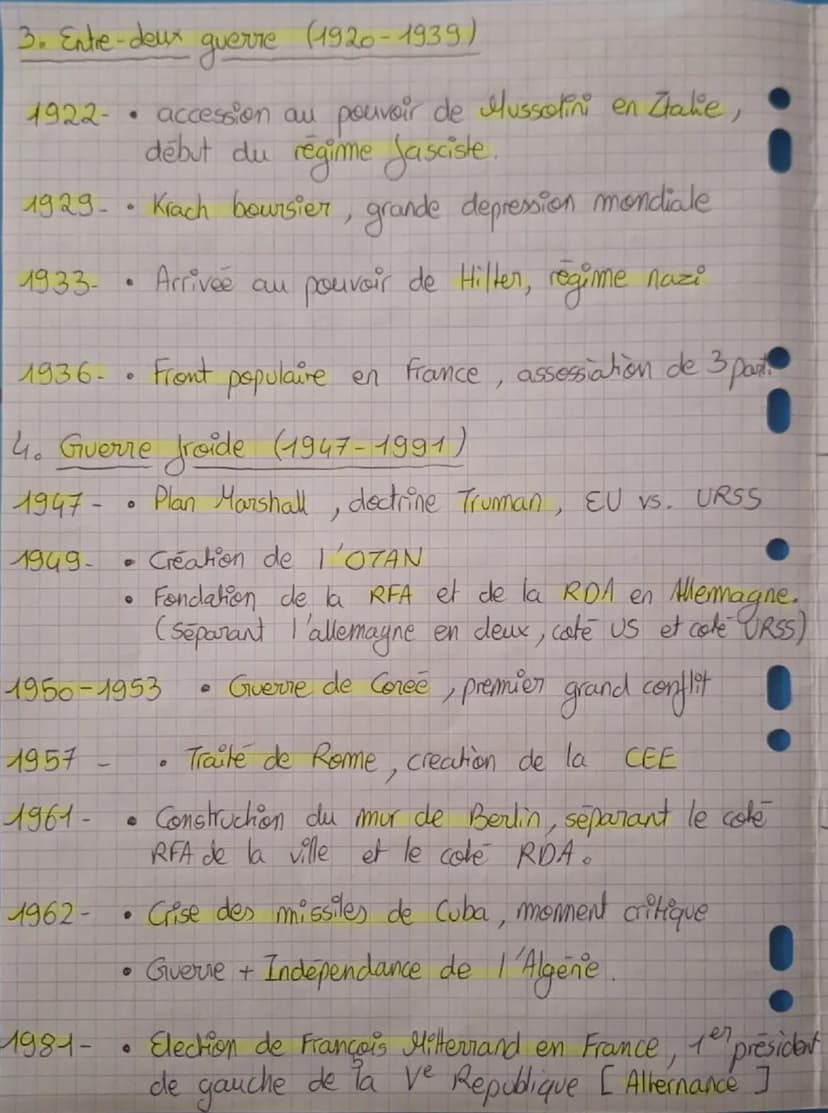 3. Entre-deux guerre (1920-1939)
1922- • accession au pouvoir de Mussolini en Italie,
début du régime fasciste.
1929- • Krach boursier, grande depression mondiale
1933- • Arriveé au pouvoir de Hilter, régime nazi
1936- • Front populaire en France, assossiation de 3 part.
4. Guerre froide (1947-1991)
1947- • Plan Marshall, doctrine Truman, EU vs. URSS
1949- • Création de l'OTAN
• Fondation de la RFA et de la RDA en Allemagne.
(séparant l'allemagne en deux, coté US et coté URSS)
1950-1953 • Guerre de Coreé, premier grand conflit
1957 - • Traité de Rome, creation de la CEE
1961- • Construction du mur de Berlin, séparant le coté
RFA de la ville et le coté RDA.
1962- • Crise des missiles de Cuba, momment critique
• Guerre + Indépendance de l'Algérie.
1981- • Election de François Mitterrand en France, 1er président
de gauche de la Ve Republique [Alternance]